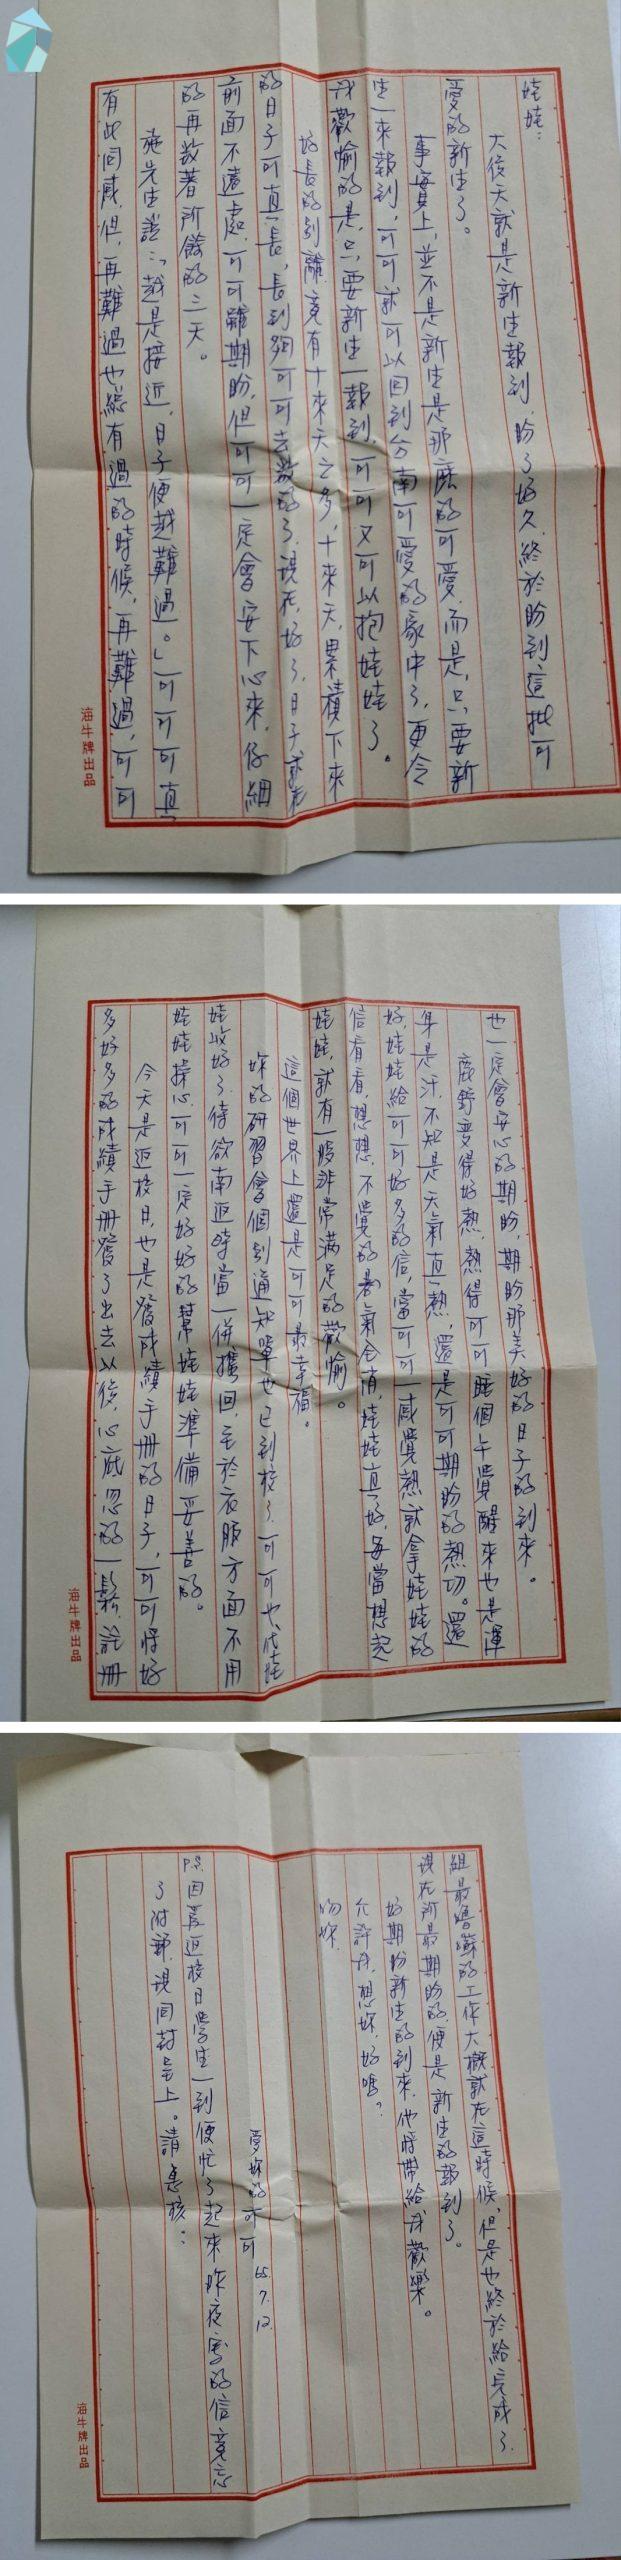 娃娃：
大後天就是新生報到，盼了好久，終於盼到這批可
愛的新生了。
事實上，並不是新生是那麼的可愛，而是，只要新
生一來報到，可可就可以回到台南可愛的家中了，更令
我歡愉的是，只要新生一報到，可可又可以抱娃娃了。
好長的別離，竟有十來天之多，十來天，累積下來
的日子可真長，長到夠可可去數的了，現在，好了，日子就在
前面不遠處，可可雖期盼，但可可一定會安下心來，仔細
的再數著所餘的三天。
施先生說：「越是接近，日子便越難過。」可可可真
有此同感，但，再難過也總有過的時候，再難過，可可
海牛牌出品
也一定會安心的期盼，期盼那美好的日子的到來。
鹿野變得好熱，熱得可可睡個午覺醒來也是渾
身是汗，不知是天氣真熱，還是可可期盼的熱切。還
好，娃娃給可可好多的信，當可可一感覺熱就拿娃娃的
信看看，想想，不覺的暑氣全消，娃娃真好，每當想起
娃娃，就有一股非常滿足的歡愉。
這個世界上還是可可最幸福。
妳的研習會個別通知單也已到校了，可可也代娃
娃收好了，待欲南返時當一併攜回，至於衣服方面不用
娃娃操心，可可一定好好的幫娃娃準備妥善的。
今天是返校日，也是發成績手冊的日子，可可將好
多好多的成績手冊發了出去以後，心底忽的一鬆，註冊
海牛牌出品
組最嚕囌的工作大概就在這時候，但是也終於給完成了，
現在所最期盼的，便是新生的報到了。
好期盼新生的到來，他將帶給我歡樂。
允許我，想妳，好嗎？
吻妳
愛妳的可可 65.7.12.
P.S. 因為返校日學生一到便忙了起來昨夜寫的信竟忘
了付郵，現同封呈上。請
海牛牌出品